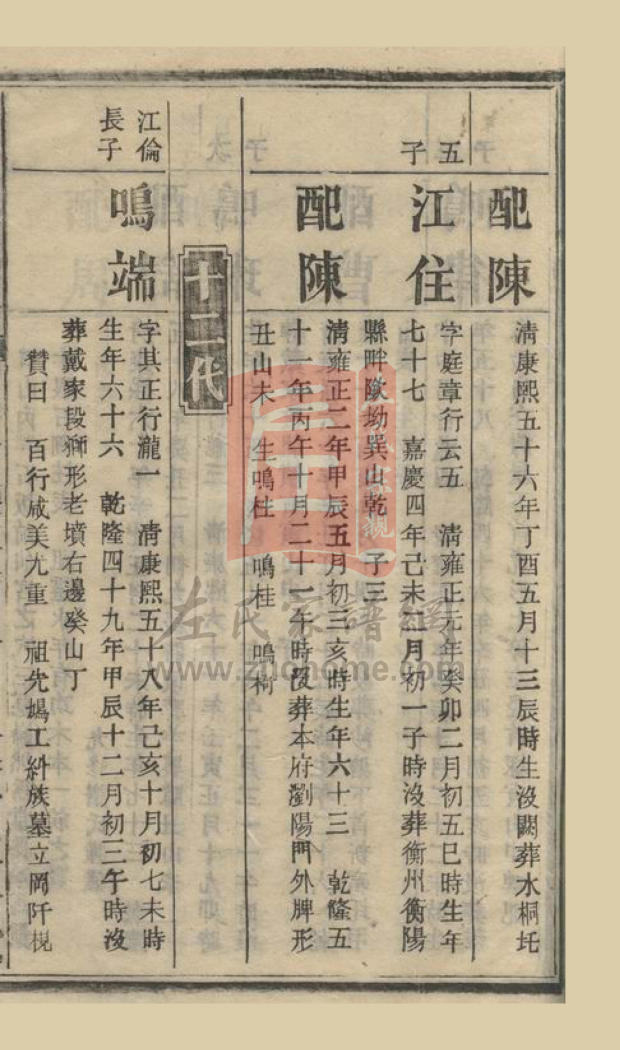 配陳
清康熙五十六年丁酉五月十三辰時生沒闕葬水桐圫
五子
江住
字庭章行云五　清雍正元年癸卯二月初五巳時生年
七十七　嘉慶四年己未二月初一子時沒葬衡州衡陽
縣畔歐坳巽山乾　子三
配陳
清雍正二年甲辰五月初三亥時生年六十三　乾隆五
十一年丙午十月二十一午時沒葬本府瀏陽門外脾形
丑山未　生鳴柱　鳴桂　鳴樹
十二代
江倫長子
鳴端
字其正行瀧一　清康熙五十八年己亥十月初七未時
生年六十六　乾隆四十九年甲辰十二月初三午時沒
葬戴家段獅形老墳右邊癸山丁
贊曰　百行咸美九重　祖先鳩工糾族墓立岡阡梘
左氏家譜網
www.zuohome.com